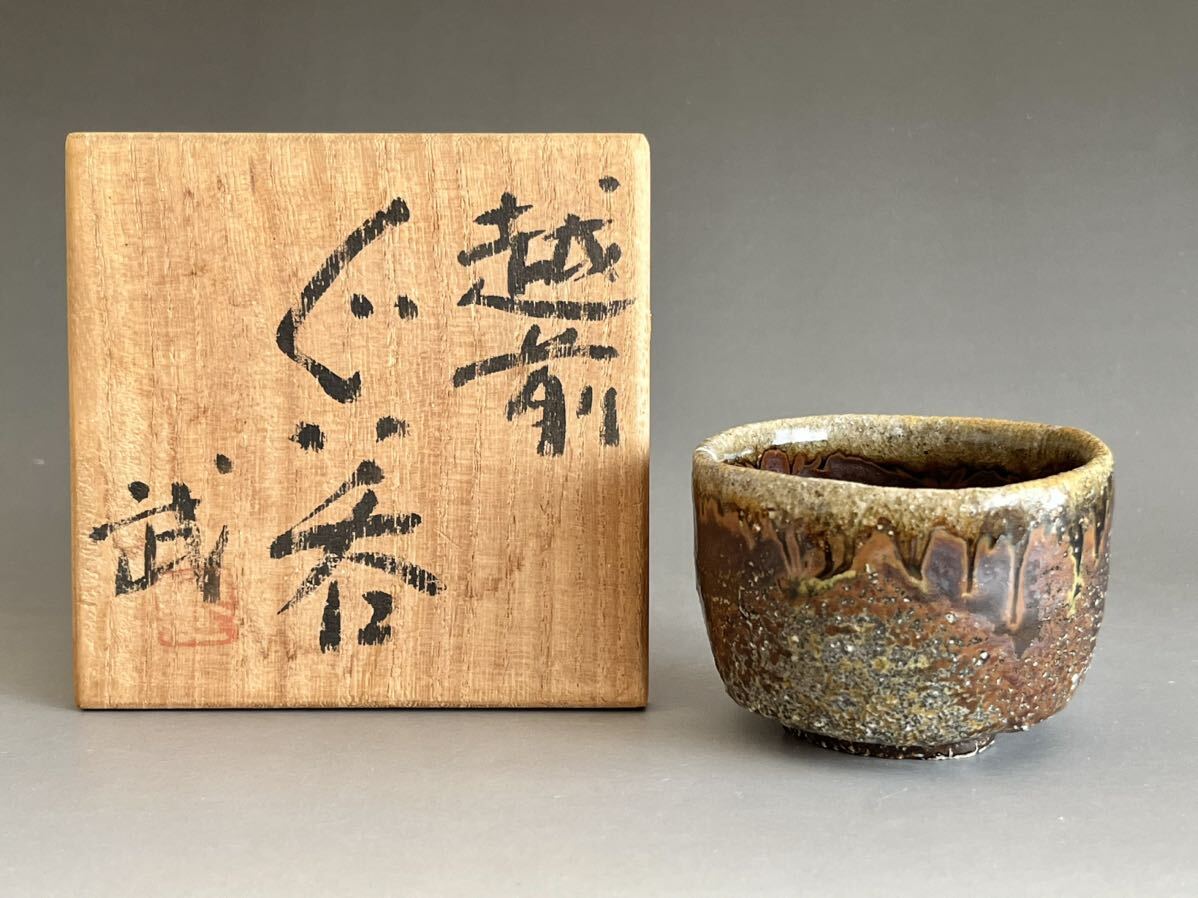 越前
ぐい呑
武